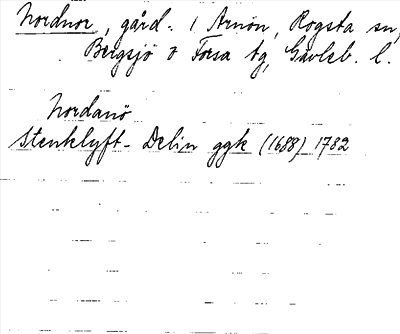 Nordnor, gård. i Arnön, Rogsta sn,
Bergsjö o Forsa tg, Gävleb. l.
Nordanö
Stenklyft-Delin ggk (1688) 1782